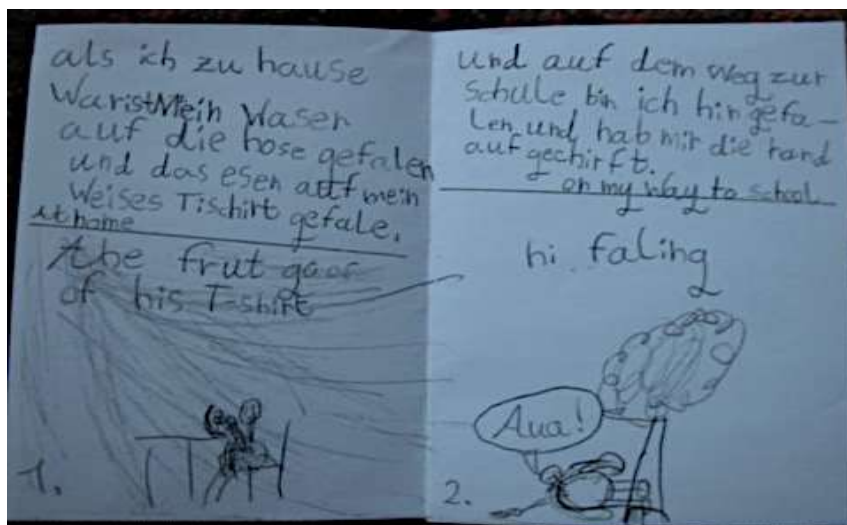 als ich zu hause
WaristMein Waser
auf die hose gefalen
und das esen auf mein
weises Tischirt gefale.
at home
the frut goes
of his T-shirt
1.
und auf dem weg zur
schule bin ich hingefa-
len und hab mir die hand
aufgechirft.
on my way to school
hi faling
Aua!
2.